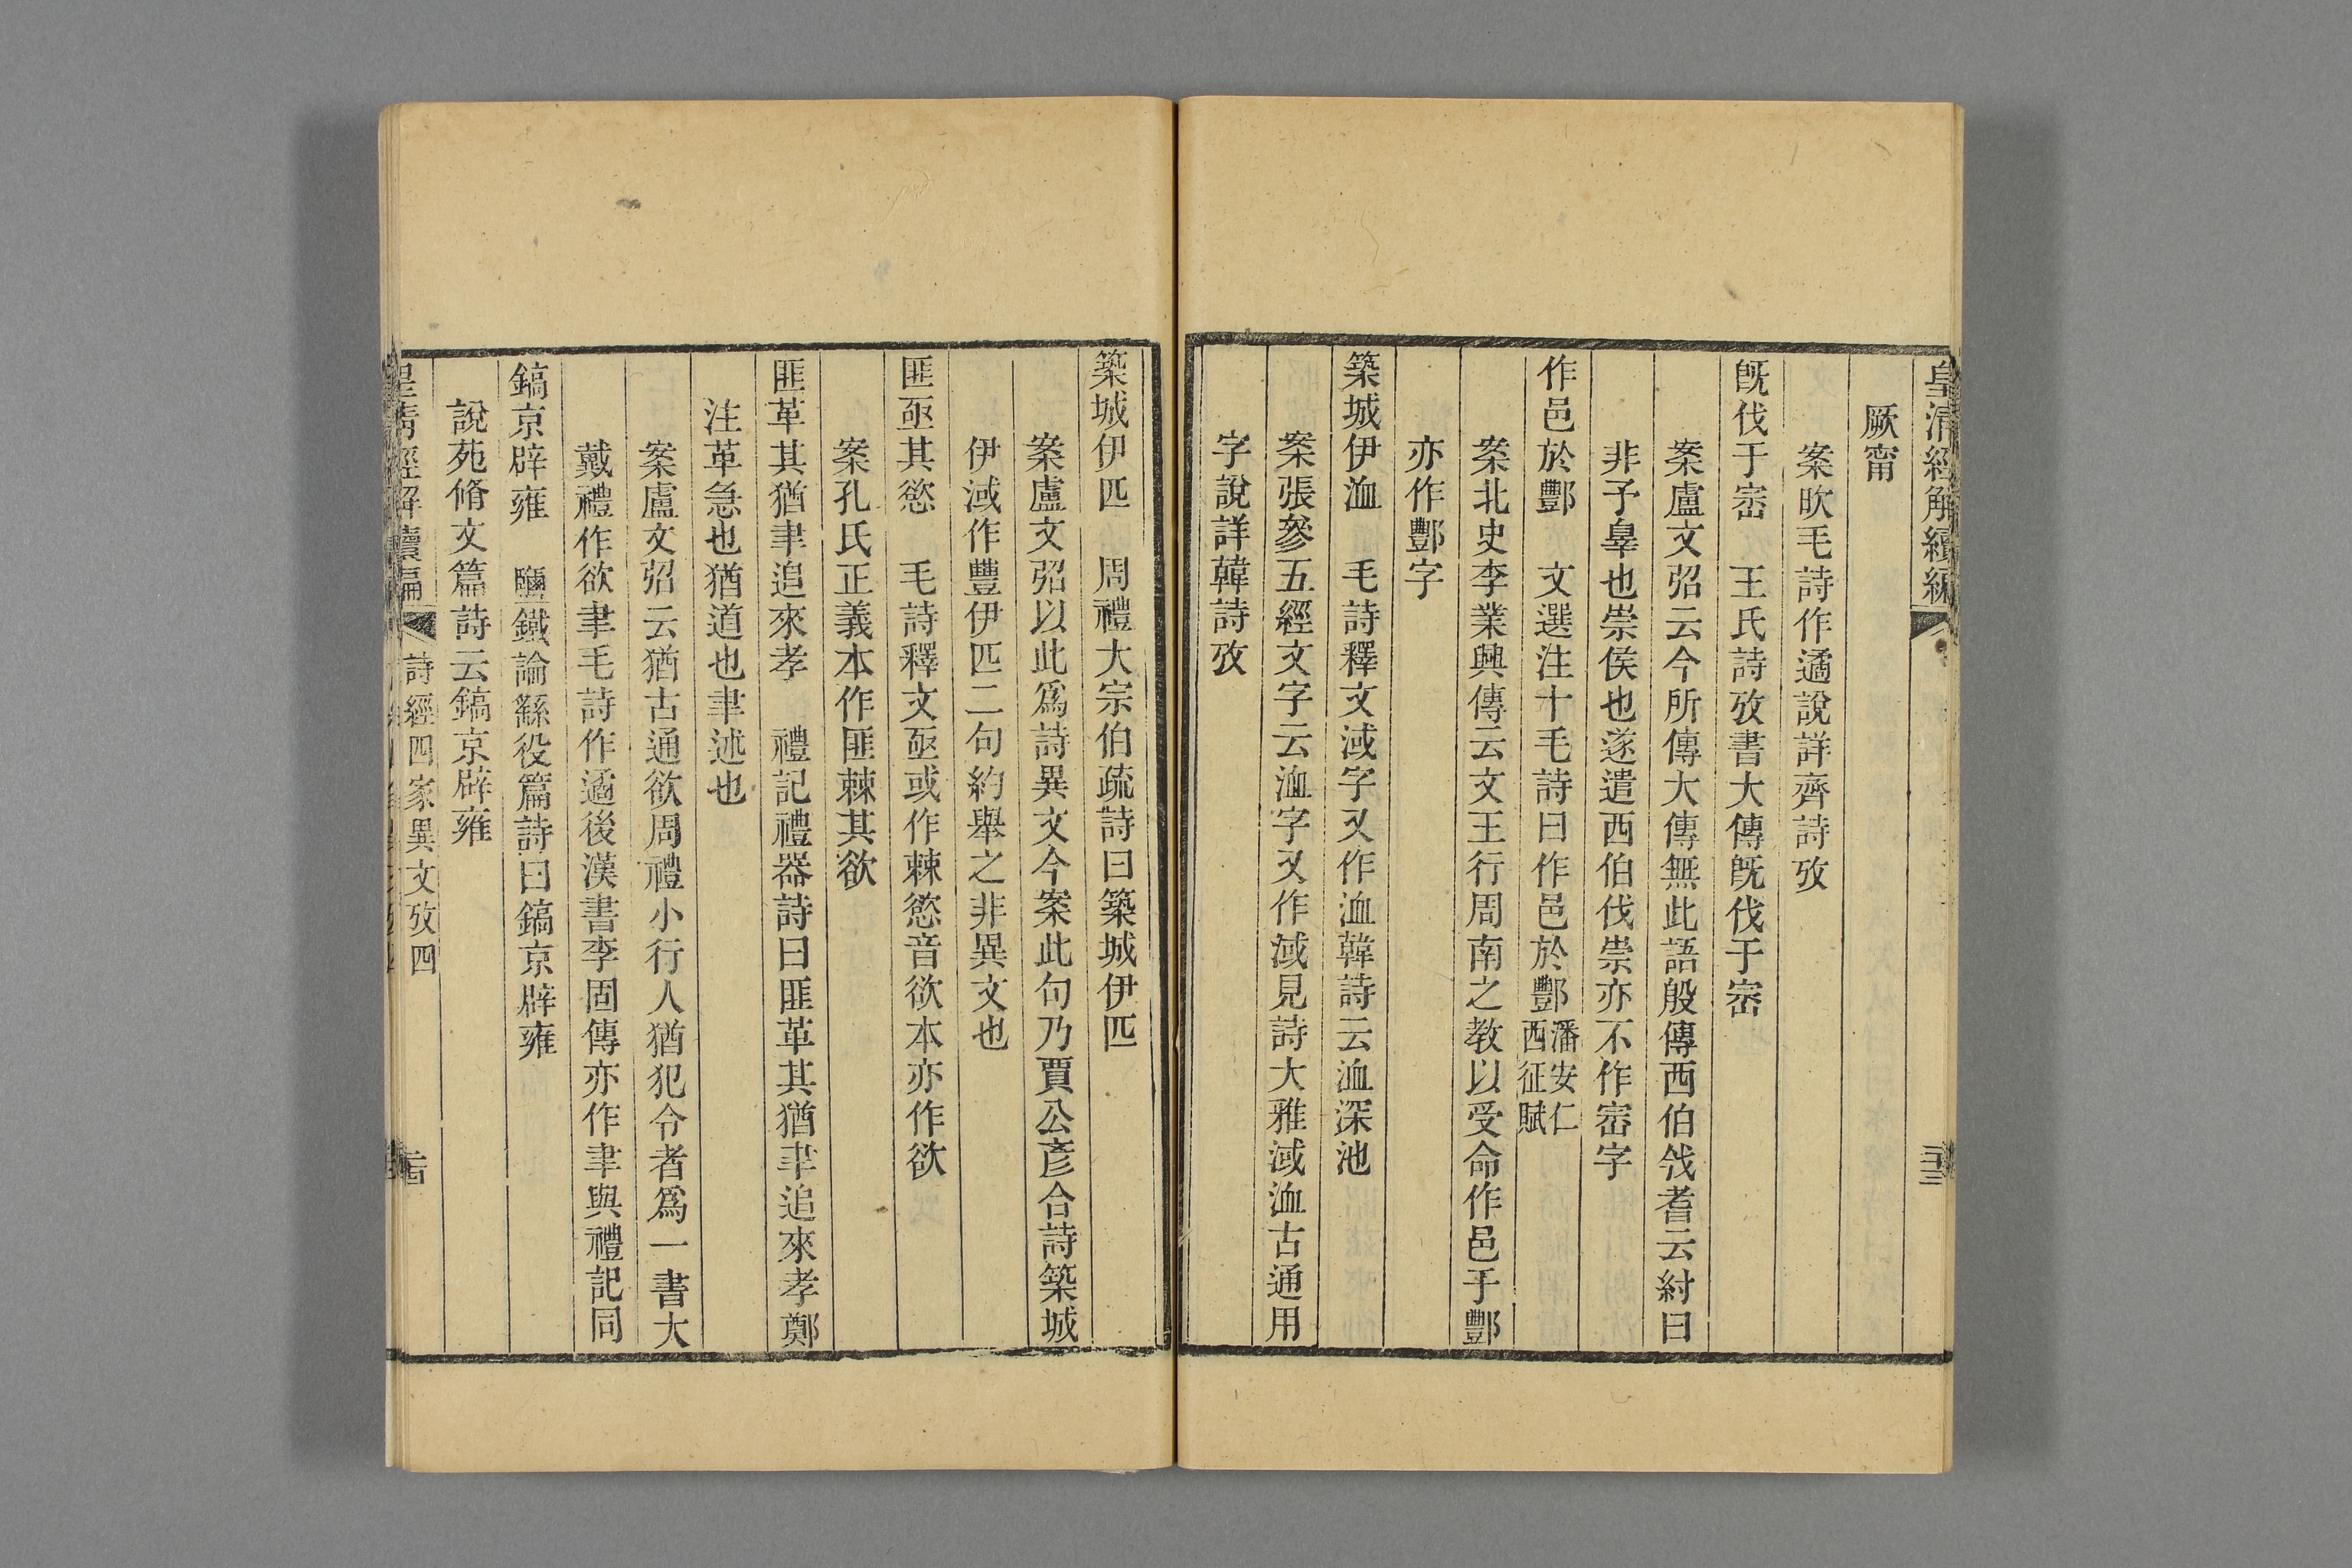 皇清經解續編
厥甯
案欥毛詩作遹說詳齊詩攷
旣伐于崈 王氏詩攷書大傳旣伐于崈
案盧文弨云今所傳大傳無此語殷傳西伯伐耆云紂曰
非予辠也崇侯也遂遣西伯伐崇亦不作崈字
作邑於酆 文選注十毛詩曰作邑於酆潘安仁西征賦
案北史李業興傳云文王行周南之教以受命作邑于酆
亦作酆字
築城伊洫 毛詩釋文淢字又作洫韓詩云洫深池
案張參五經文字云洫字又作淢見詩大雅淢洫古通用
字說詳韓詩攷
築城伊匹 周禮大宗伯疏詩曰築城伊匹
案盧文弨以此爲詩異文今案此句乃賈公彥合詩築城
伊淢作豐伊匹二句約舉之非異文也
匪亟其慾 毛詩釋文亟或作棘慾音欲本亦作欲
案孔氏正義本作匪棘其欲
匪革其猶聿追來孝 禮記禮器詩曰匪革其猶聿追來孝鄭
注革急也猶道也聿述也
案盧文弨云猶古通欲周禮小行人猶犯令者爲一書大
戴禮作欲聿毛詩作遹後漢書李固傳亦作聿與禮記同
鎬京辟雍 鹽鐵論繇役篇詩曰鎬京辟雍
說苑脩文篇詩云鎬京辟雍
皇清經解續編 詩經四家異文攷四